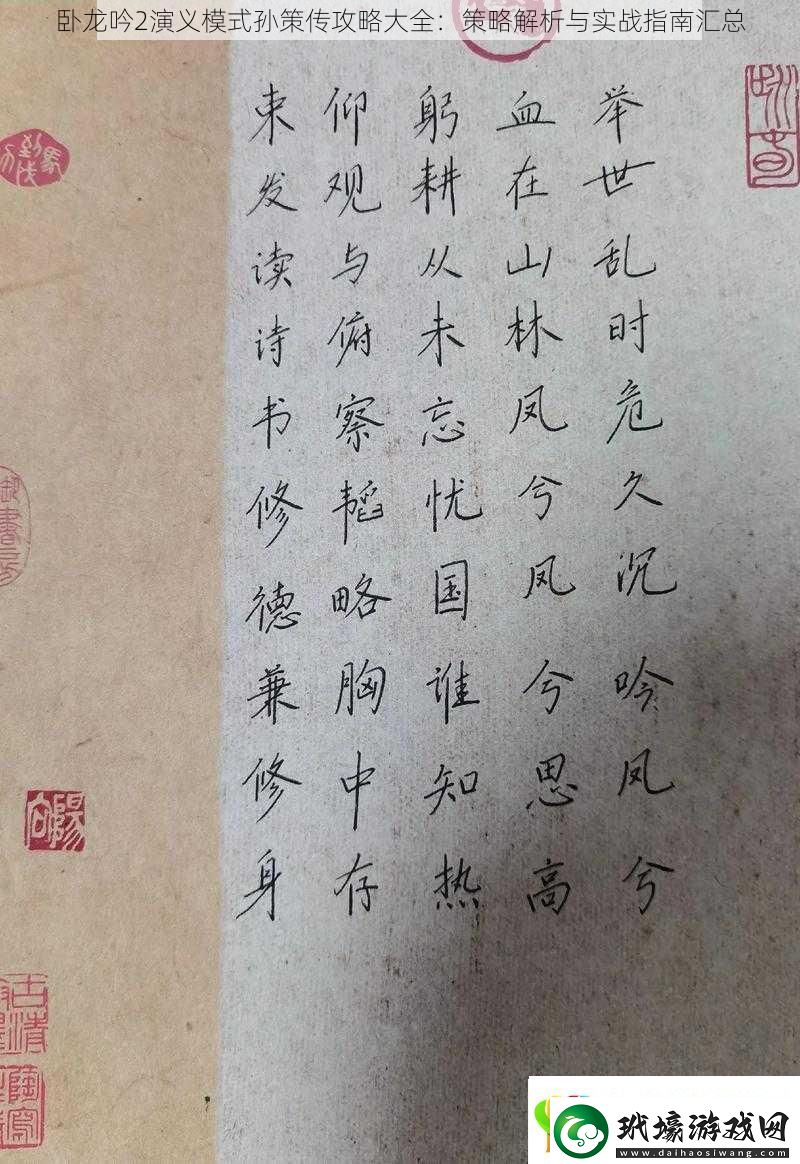 卧龙吟2演义模式孙策传攻略大全：策略解析与实战指南汇总
束发读诗书修德兼修身
仰观与俯察韬略胸中存
躬耕从未忘忧国谁知热
血在山林凤兮凤兮思高
举世乱时危久沉吟凤兮
玳壕游戏网
www.daihaosiwang.com